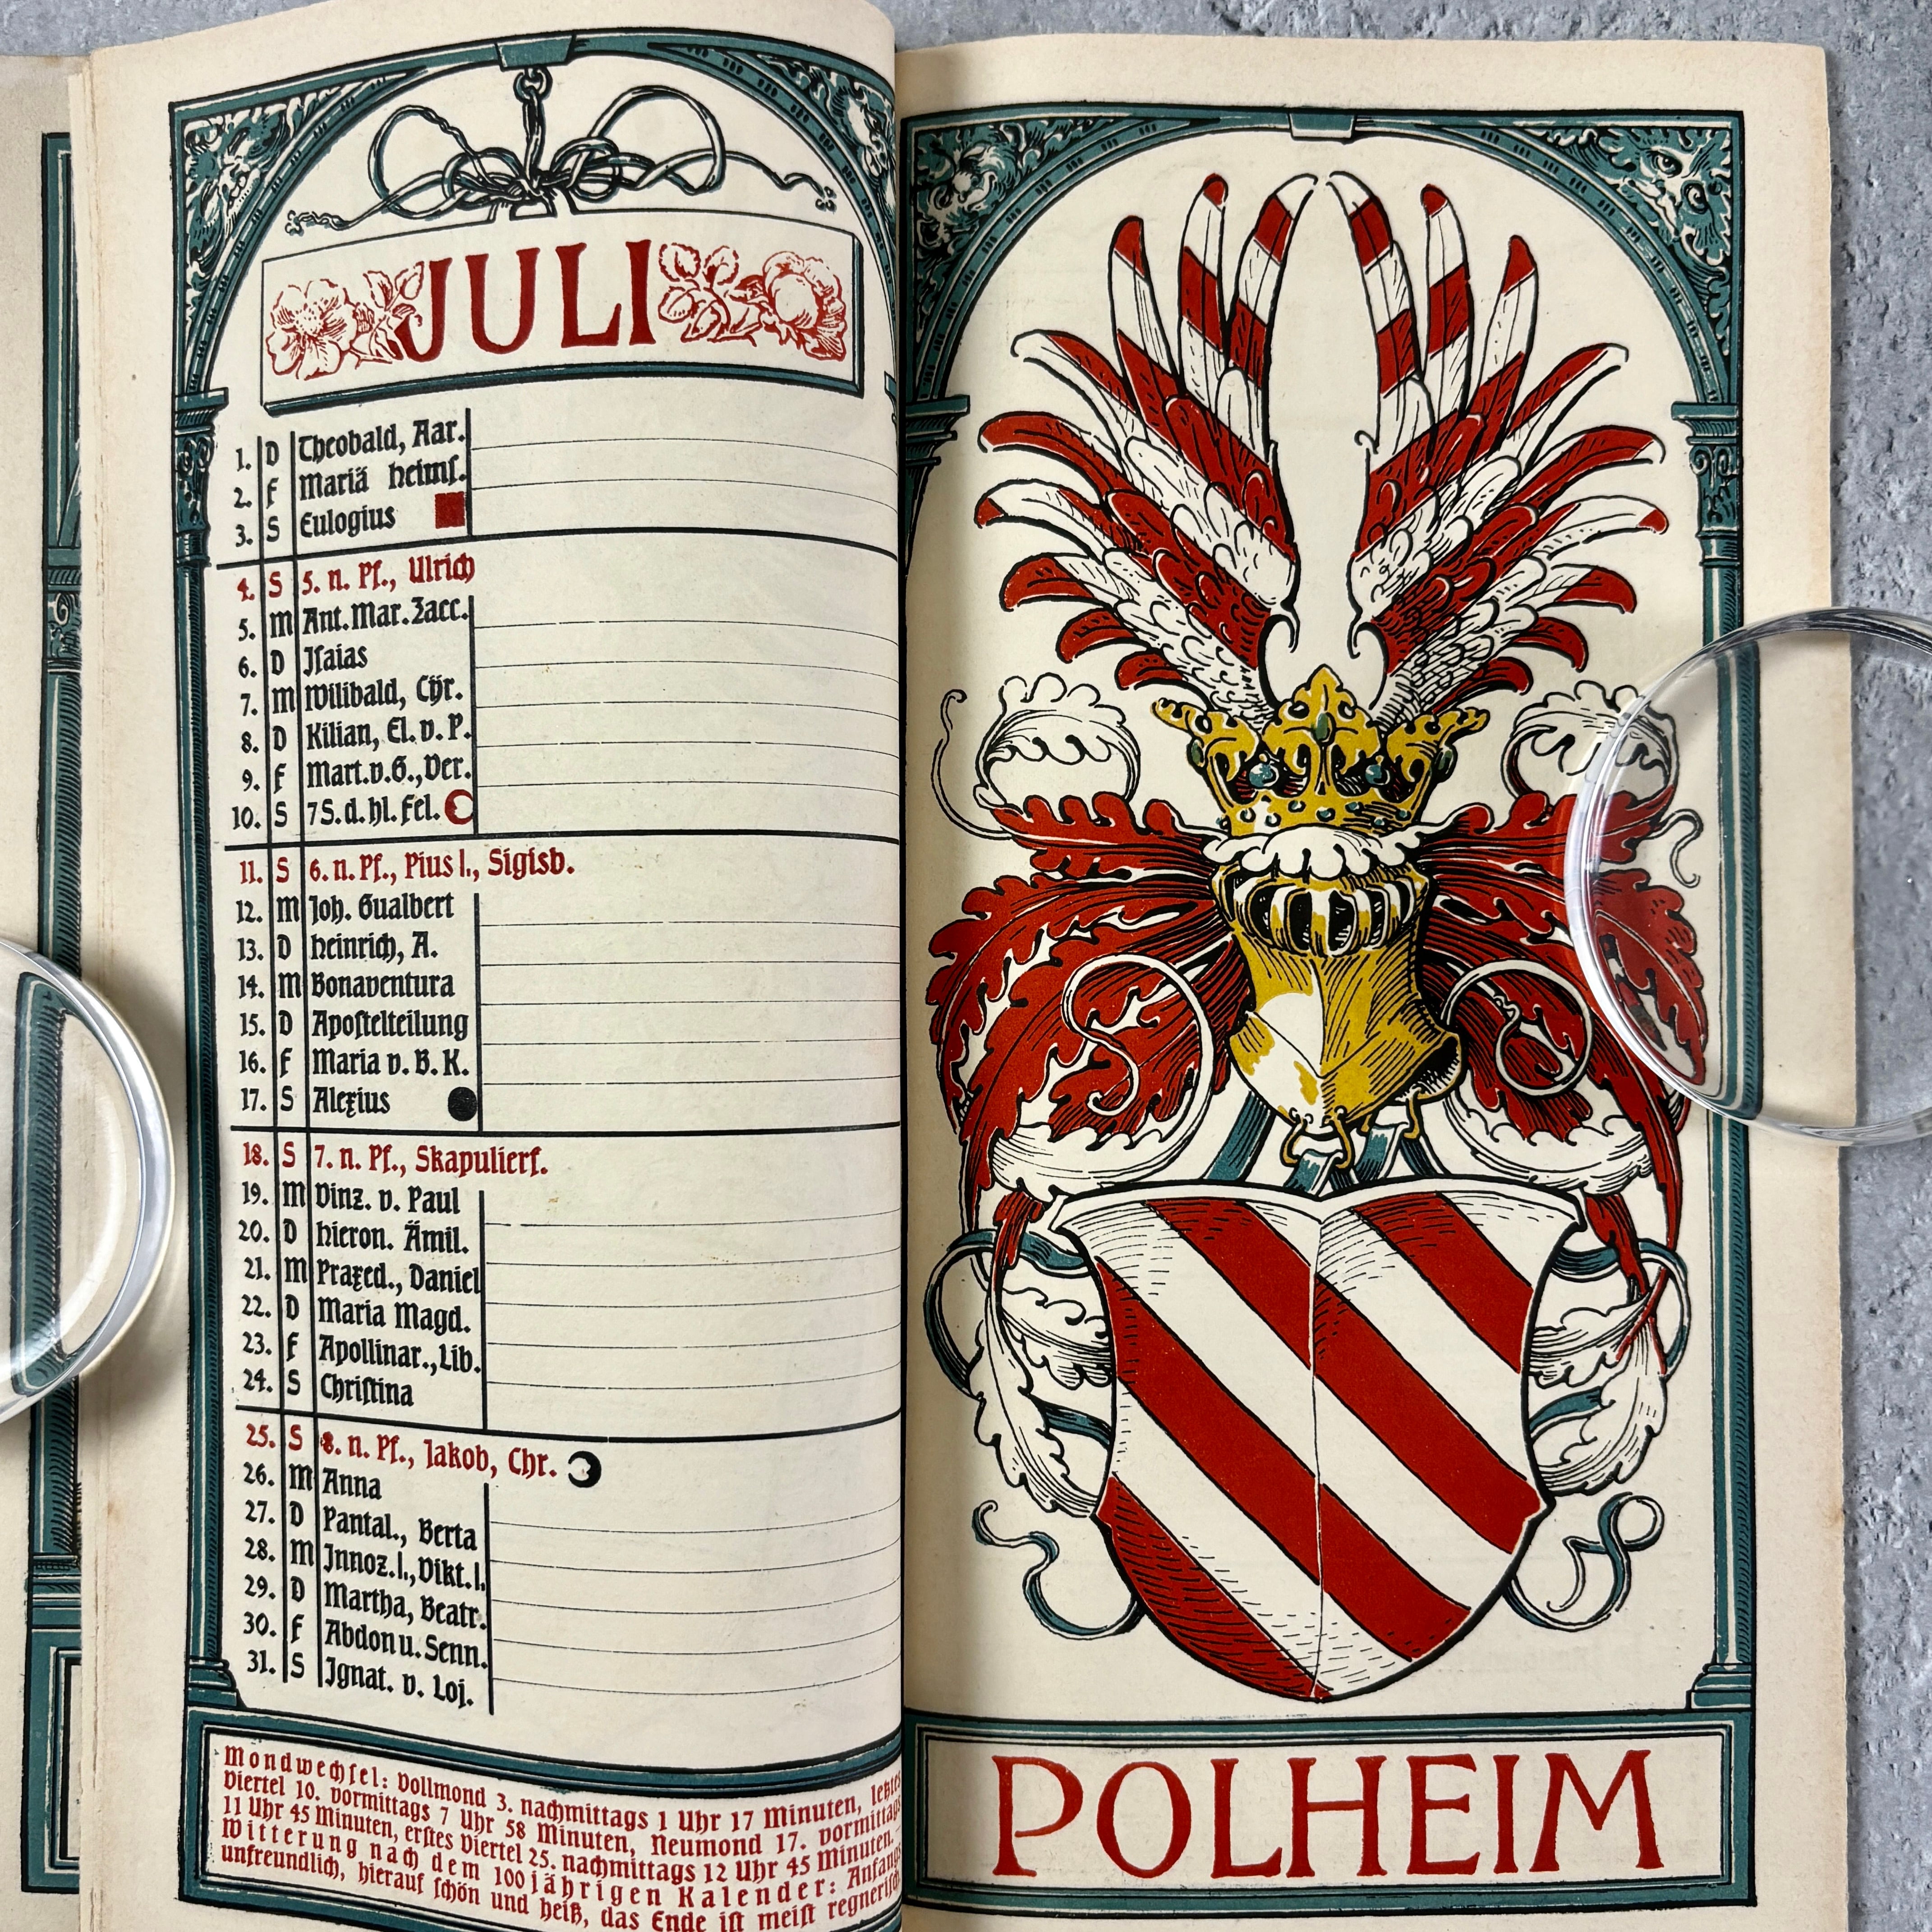 JULI
1. D Theobald, Aar.
2. F Mariä Heimſ.
3. S Eulogius
4. S 5. n. Pf., Ulrich
5. M Ant. Mar. Zacc.
6. D Iſaias
7. M Wilibald, Cyr.
8. D Kilian, El. v. P.
9. F Mart. v. G., Ver.
10. S 7 S. d. hl. Fel.
11. S 6. n. Pf., Pius I., Sigisb.
12. M Joh. Gualbert
13. D Heinrich, A.
14. M Bonaventura
15. D Apoſtelteilung
16. F Maria v. B. K.
17. S Alexius
18. S 7. n. Pf., Skapulierf.
19. M Vinz. v. Paul
20. D Hieron. Ämil.
21. M Praxed., Daniel
22. D Maria Magd.
23. F Apollinar., Lib.
24. S Chriſtina
25. S 8. n. Pf., Jakob, Chr.
26. M Anna
27. D Pantal., Berta
28. M Innoz. I., Vikt. I.
29. D Martha, Beatr.
30. F Abdon u. Senn.
31. S Ignat. v. Loj.
Mondwechſel: Vollmond 3. nachmittags 1 Uhr 17 Minuten, letztes
Viertel 10. vormittags 7 Uhr 58 Minuten, Neumond 17. vormittags
11 Uhr 45 Minuten, erſtes Viertel 25. nachmittags 12 Uhr 45 Minuten. –
Witterung nach dem 100jährigen Kalender: Anfangs
unfreundlich, hierauf ſchön und heiß, das Ende iſt meiſt regneriſch
POLHEIM